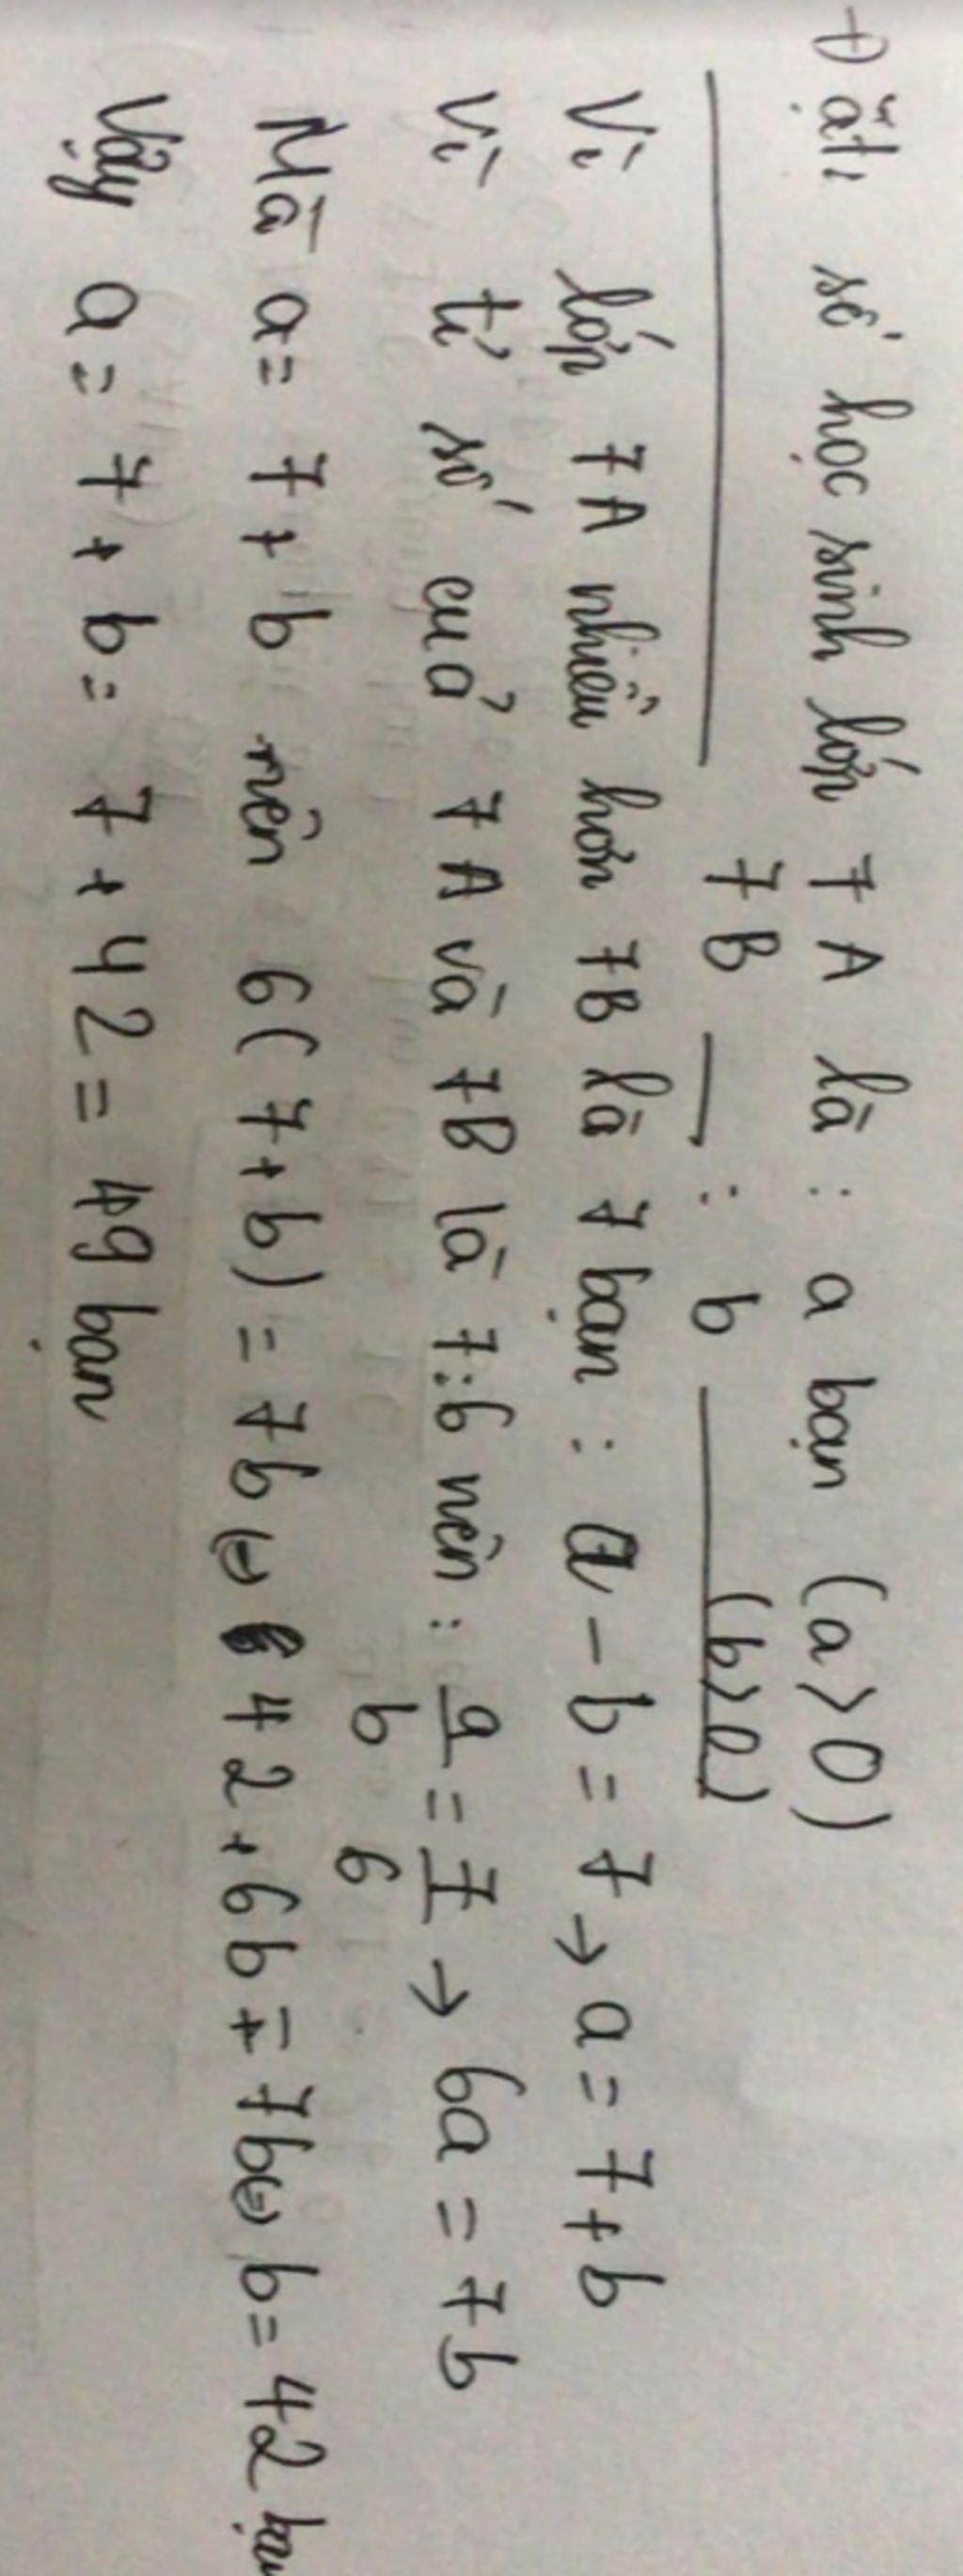 Đặt số học sinh lớp 7A là : a bạn (a > 0)
7B — : b — (b > 0)
Vì lớp 7A nhiều hơn 7B là 7 bạn : a - b = 7 → a = 7 + b
Vì tỉ số của 7A và 7B là 7:6 nên : a/b = 7/6 → 6a = 7b
Mà a = 7 + b nên 6(7+b) = 7b ⇔ 42 + 6b = 7b ⇔ b = 42 bạn
Vậy a = 7 + b = 7 + 42 = 49 bạn